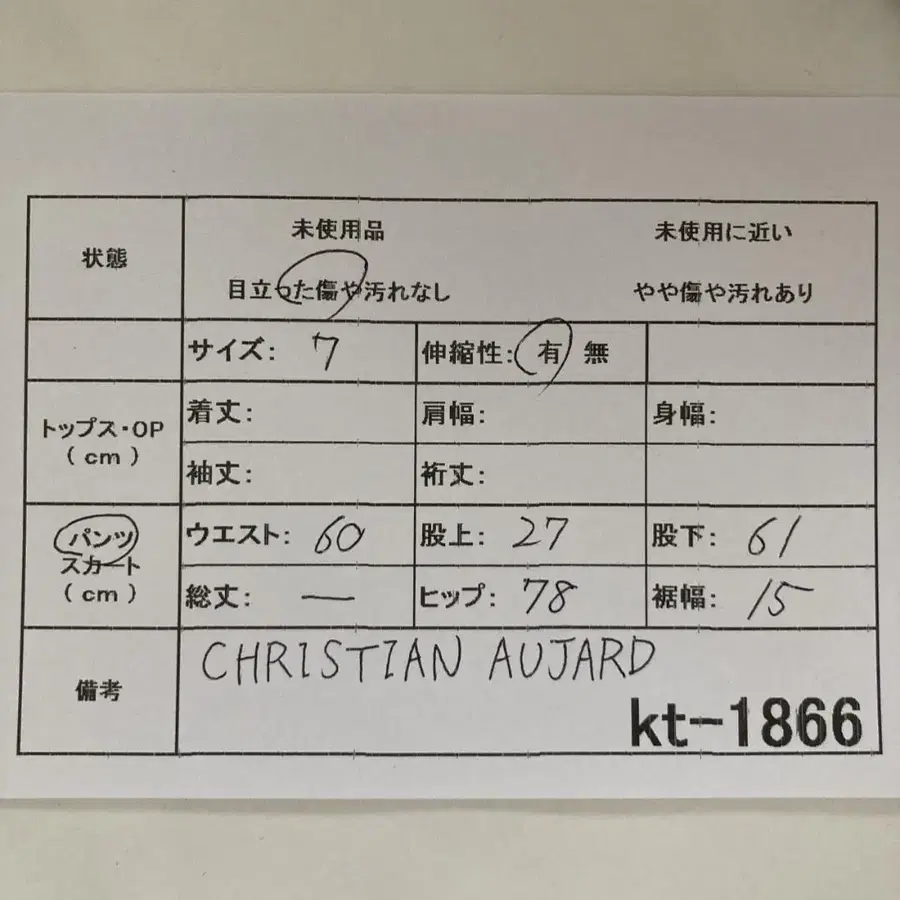 状態
未使用品 未使用に近い
目立った傷や汚れなし やや傷や汚れあり
サイズ: 7 伸縮性: 有 無
トップス・OP
(cm)
着丈: 肩幅: 身幅:
袖丈: 裄丈:
パンツ
スカート
(cm)
ウエスト: 60 股上: 27 股下: 61
総丈: — ヒップ: 78 裾幅: 15
備考
CHRISTIAN AUJARD
kt-1866